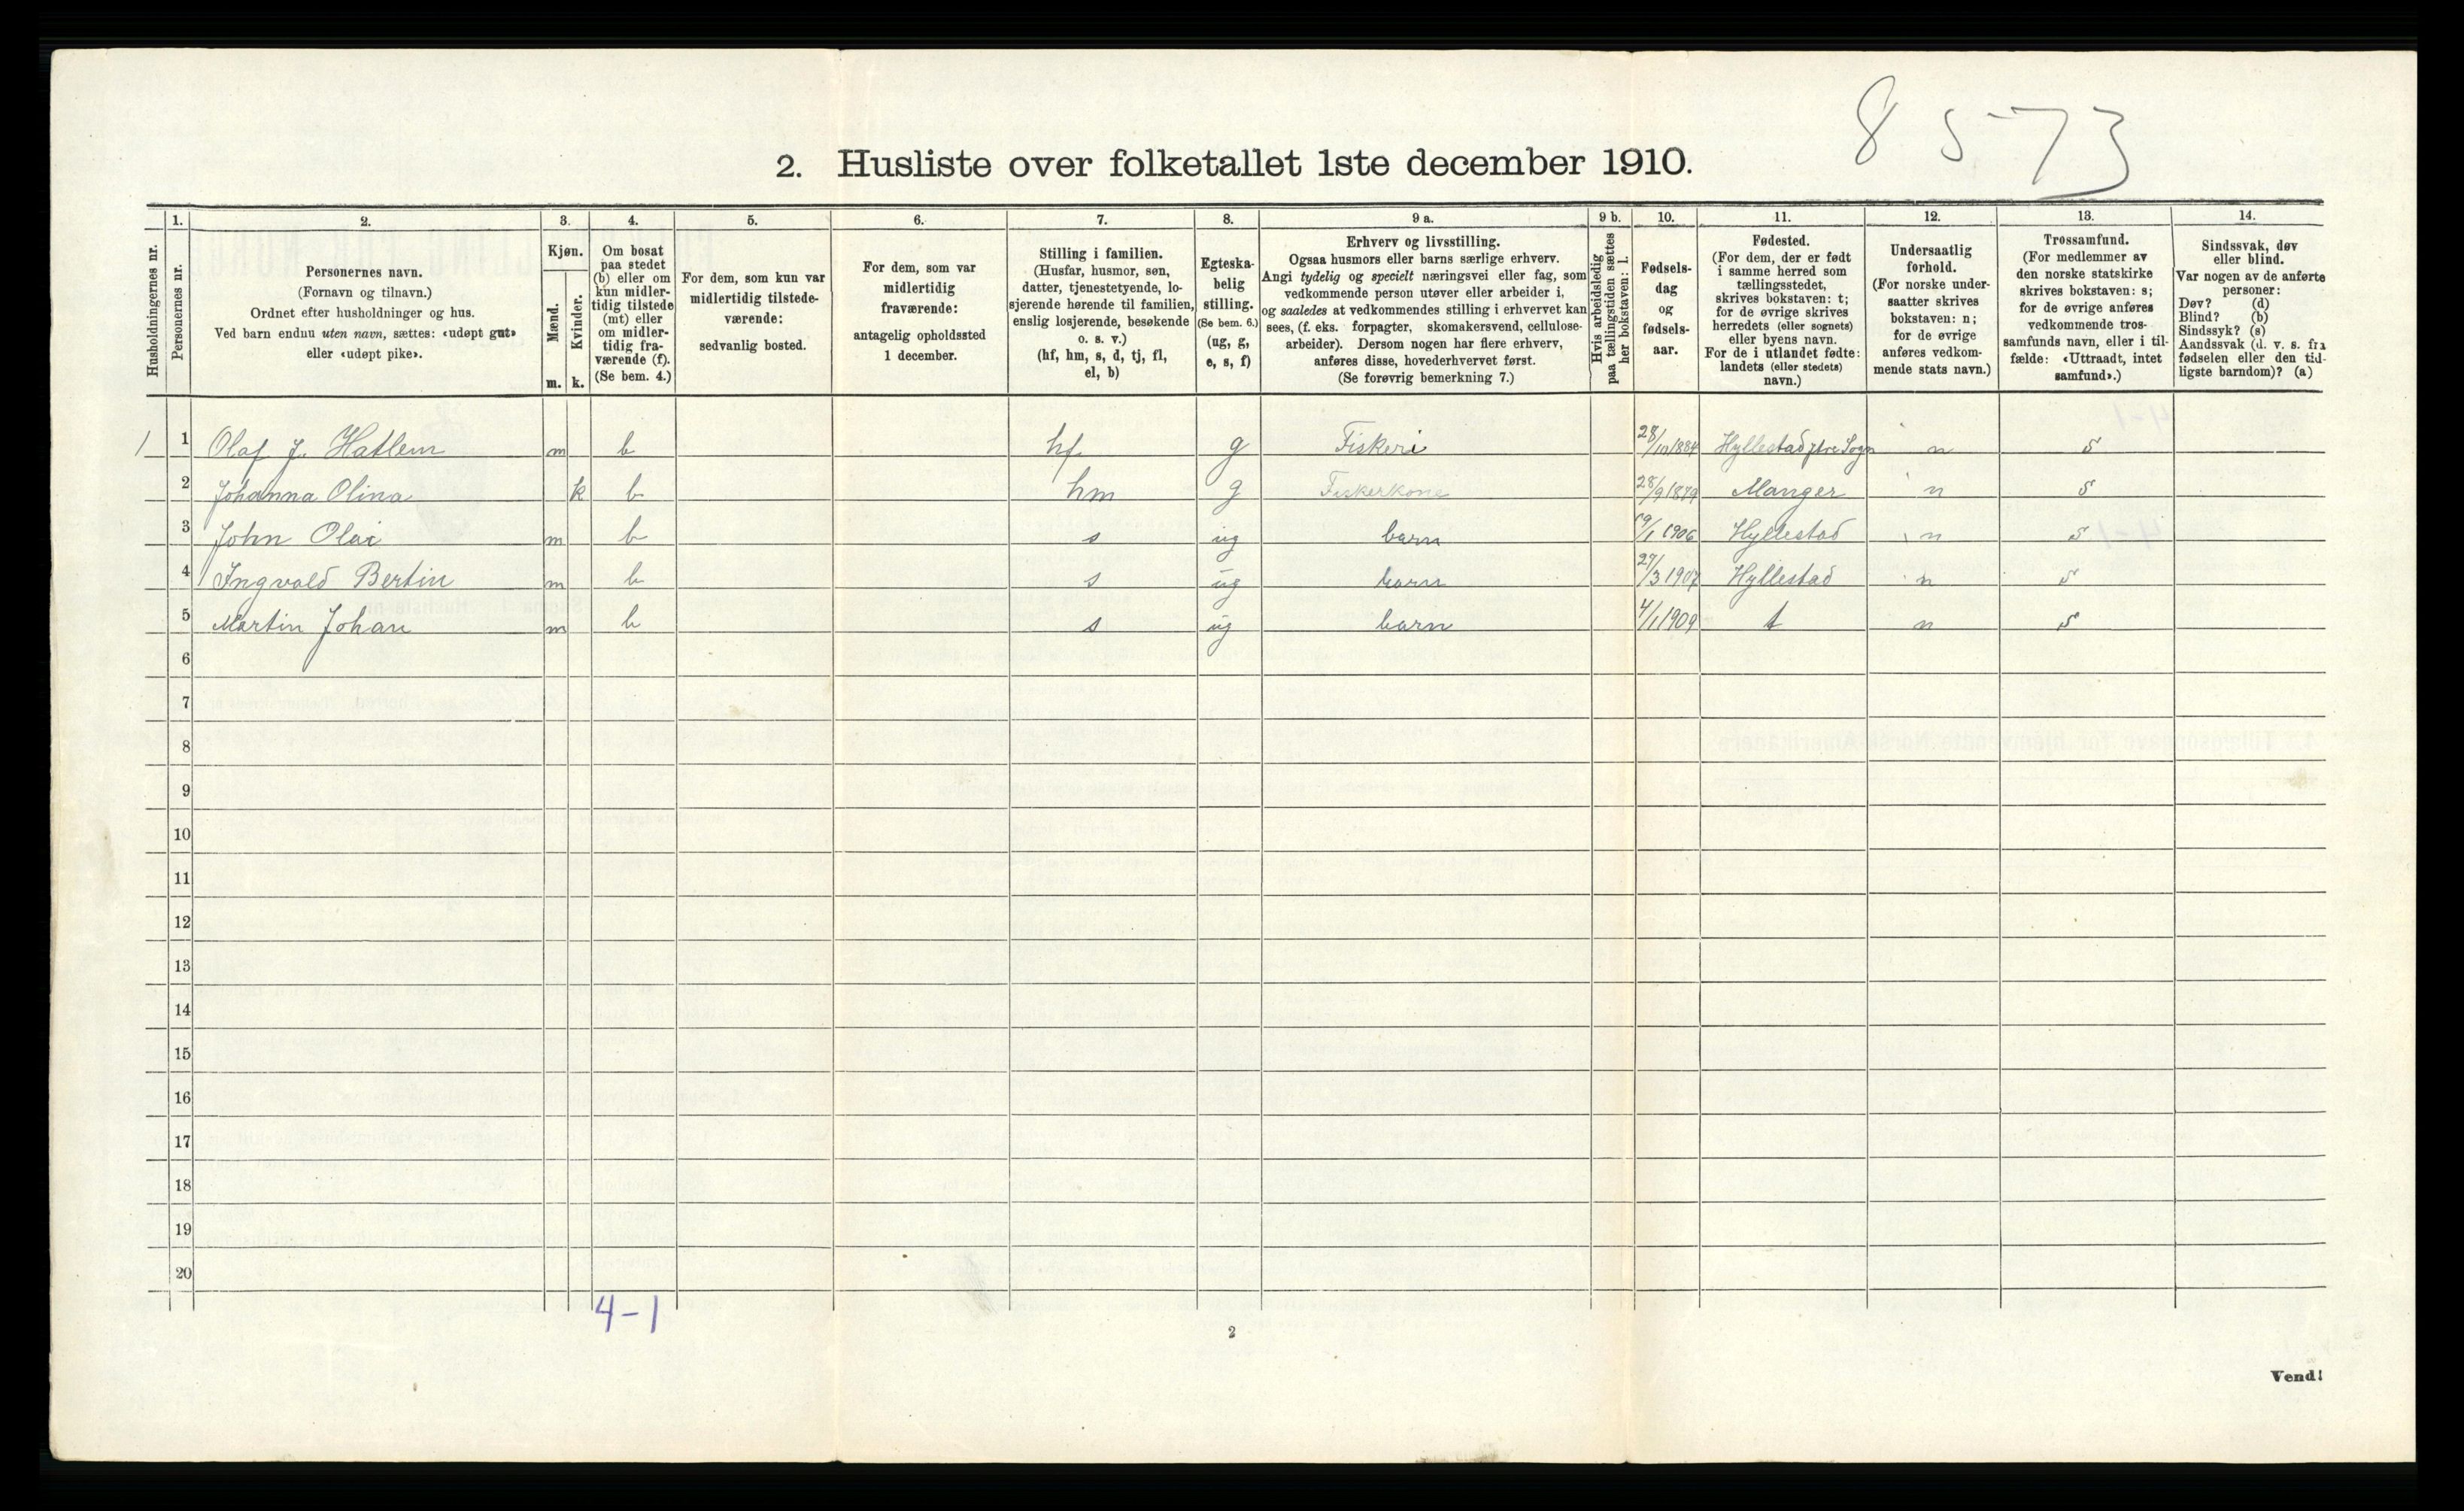 8 5 73
2. Husliste over folketallet 1ste december 1910.
Husholdningernes nr.
1. Personernes nr.
2. Personernes navn.
(Fornavn og tilnavn.)
Ordnet efter husholdninger og hus.
Ved barn endnu uten navn, sættes: «udøpt gut»
eller «udøpt pike».
3. Kjøn.
Mænd. m.
Kvinder. k.
4. Om bosat
paa stedet
(b) eller om
kun midler-
tidig tilstede
(mt) eller
om midler-
tidig fra-
værende (f).
(Se bem. 4.)
5. For dem, som kun var
midlertidig tilstede-
værende:
sedvanlig bosted.
6. For dem, som var
midlertidig
fraværende:
antagelig opholdssted
1 december.
7. Stilling i familien.
(Husfar, husmor, søn,
datter, tjenestetyende, lo-
sjerende hørende til familien,
enslig losjerende, besøkende
o. s. v.)
(hf, hm, s, d, tj, fl,
el, b)
8. Egteska-
belig
stilling.
(Se bem. 6.)
(ug, g,
e, s, f)
9 a. Erhverv og livsstilling.
Ogsaa husmors eller barns særlige erhverv.
Angi tydelig og specielt næringsvei eller fag, som
vedkommende person utøver eller arbeider i,
og saaledes at vedkommendes stilling i erhvervet kan
sees, (f. eks. forpagter, skomakersvend, cellulose-
arbeider). Dersom nogen har flere erhverv,
anføres disse, hovederhvervet først.
(Se forøvrig bemerkning 7.)
9 b. Hvis arbeidsledig
paa tællingstiden sættes
her bokstaven: l.
10. Fødsels-
dag
og
fødsels-
aar.
11. Fødested.
(For dem, der er født
i samme herred som
tællingsstedet,
skrives bokstaven: t;
for de øvrige skrives
herredets (eller sognets)
eller byens navn.
For de i utlandet fødte:
landets (eller stedets)
navn.)
12. Undersaatlig
forhold.
(For norske under-
saatter skrives
bokstaven: n;
for de øvrige
anføres vedkom-
mende stats navn.)
13. Trossamfund.
(For medlemmer av
den norske statskirke
skrives bokstaven: s;
for de øvrige anføres
vedkommende tros-
samfunds navn, eller i til-
fælde: «Uttraadt, intet
samfund».)
14. Sindssvak, døv
eller blind.
Var nogen av de anførte
personer:
Døv? (d)
Blind? (b)
Sindssyk? (s)
Aandssvak (d. v. s. fra
fødselen eller den tid-
ligste barndom)? (a)
1 1 Olaf J. Hatlem m b hf. g Fiskeri 28/10 1884 Hyllestad Sogn n S
2 Johanna Olina k b hm g Fiskerkone 28/9 1879 Manger n S
3 John Olai m b s ug barn 19/1 1906 Hyllestad n S
4 Ingvald Bertin m b s ug barn 27/3 1907 Hyllestad n S
5 Martin Johan m b s ug barn 4/1 1909 t n S
6
7
8
9
10
11
12
13
14
15
16
17
18
19
20
4-1
2
Vend!